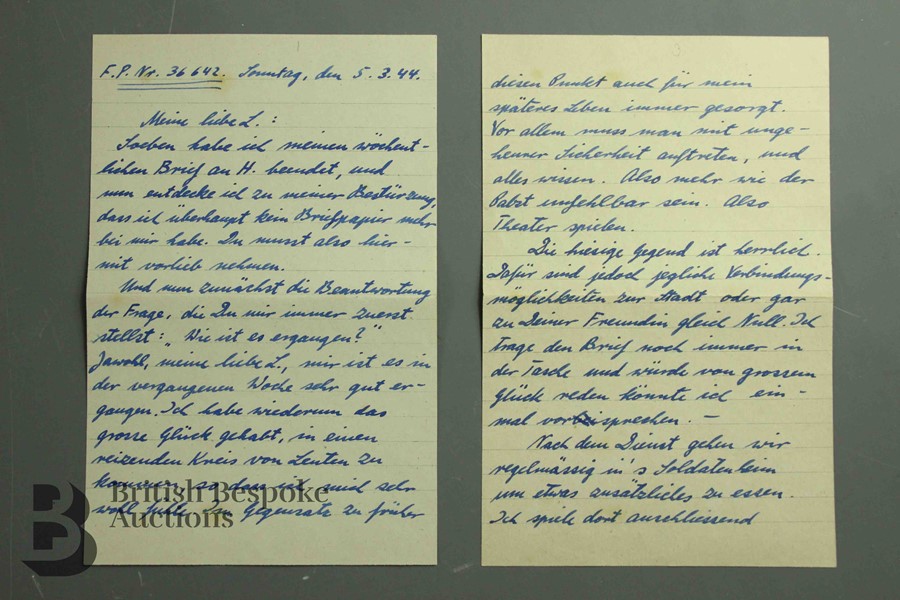 F.P. Nr. 36 642. Sonntag, den 5.3.44.
Meine liebe L.:
Soeben habe ich meinen wöchent-
lichen Brief an H. beendet, und
nun entdecke ich zu meiner Bestürzung,
dass ich überhaupt kein Briefpapier mehr
bei mir habe. Du musst also hier-
mit vorlieb nehmen.
Und nun zunächst die Beantwortung
der Frage, die Du mir immer zuerst
stellst: „Wie ist es ergangen?"
Jawohl, meine liebe L., mir ist es in
der vergangenen Woche sehr gut er-
gangen. Ich habe wiederum das
grosse Glück gehabt, in einen
reizenden Kreis von Leuten zu
kommen, so dass ich mich sehr
wohl fühle. Im Gegensatz zu früher
British Bespoke
Auctions
diesen Punkt auch für mein
späteres Leben immer gesorgt.
Vor allem muss man mit unge-
heurer Sicherheit auftreten, und
alles wissen. Also mehr wie der
Papst unfehlbar sein. Also
Theater spielen.
Die hiesige Gegend ist herrlich.
Dafür sind jedoch jegliche Verbindungs-
möglichkeiten zur Stadt oder gar
zu Deiner Freundin gleich Null. Ich
trage den Brief noch immer in
der Tasche und würde von grossem
Glück reden könnte ich ein-
mal vorbeisprechen. –
Nach dem Dienst gehen wir
regelmässig in's Soldatenheim
um etwas zusätzliches zu essen.
Ich spiele dort anschliessend